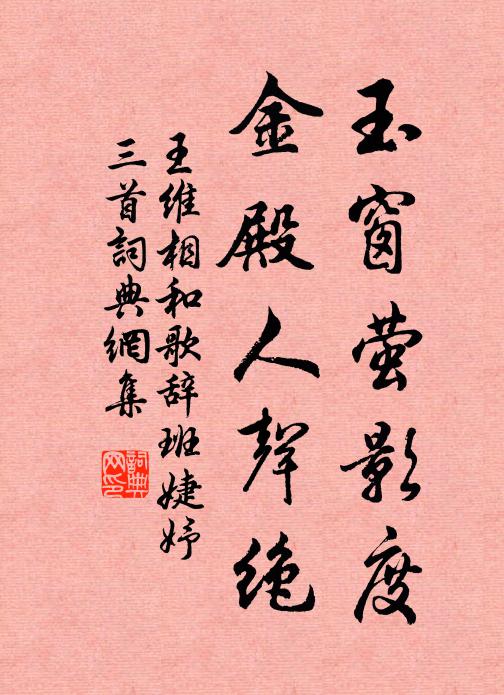 玉窗萤影度
金殿人聲绝
王维相和歌辞班婕妤
三首詞典網集
詞典網印